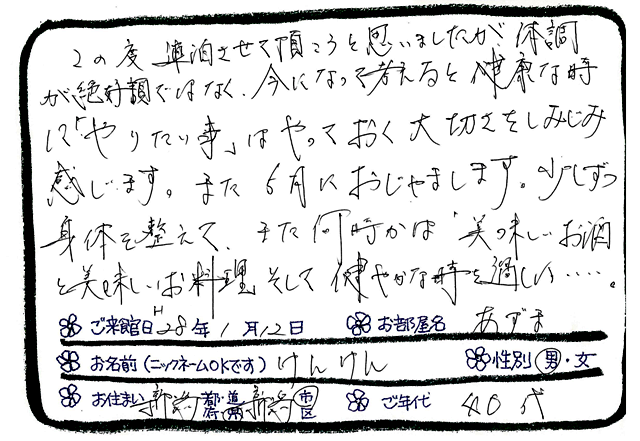 この度 連泊させて頂こうと思いましたが、体調
が絶好調ではなく、今になって考えると健康な時
に「やりたい事」はやっておく大切さをしみじみ
感じます。また6月におじゃまします。少しずつ
身体を整えて、また何時かは「美味しいお酒
と美味しいお料理 そして 健やかな時を過しい・・・・・。
ご来館日 H28年1月12日 お部屋名 あずま
お名前(ニックネームOKです) けんけん 性別 男・女
お住まい 新潟 都・道 府・県 新潟 市 区 ご年代 40代